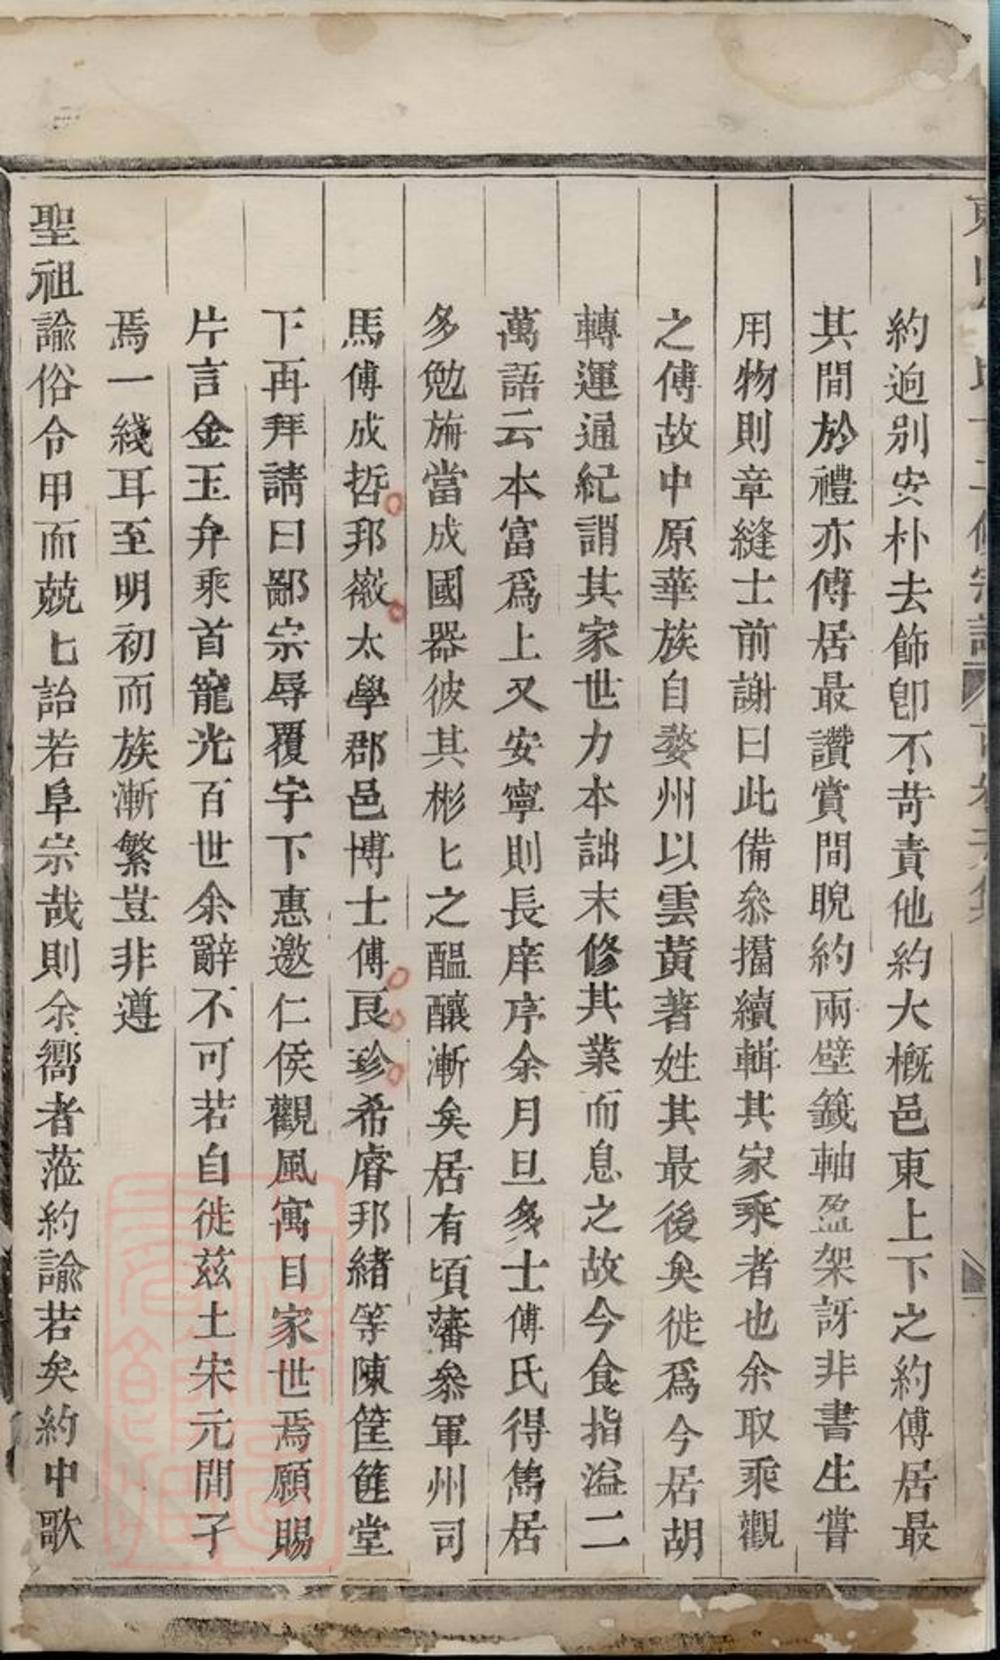 約逈别安朴去飾卽不苛責他約大槪邑東上下之約傅居最
其間於禮亦傅居最讚賞間睨約兩壁籤軸盈架訝非書生嘗
用物則章縫士前謝曰此備叅攟續輯其家乘者也余取乘觀
之傅故中原華族自婺州以雲黃著姓其最後矣徙爲今居胡
轉運通紀謂其家世力本詘末修其業而息之故今食指溢二
萬語云本富爲上又安寧則長庠序余月旦多士傅氏得雋居
多勉旃當成國器彼其彬匕之醞釀漸矣居有頃藩叅軍州司
馬傅成哲邦徽太學郡邑博士傅良珍希睿邦緖等陳筐篚堂
下再拜請曰鄙宗辱覆宇下惠邀仁侯觀風寓目家世焉願賜
片言金玉弁乘首寵光百世余辭不可若自徙兹土宋元間子
焉一綫耳至明初而族漸繁豈非遵
聖祖諭俗令甲而兢匕詒若阜宗哉則余嚮者蒞約諭若矣約中歌